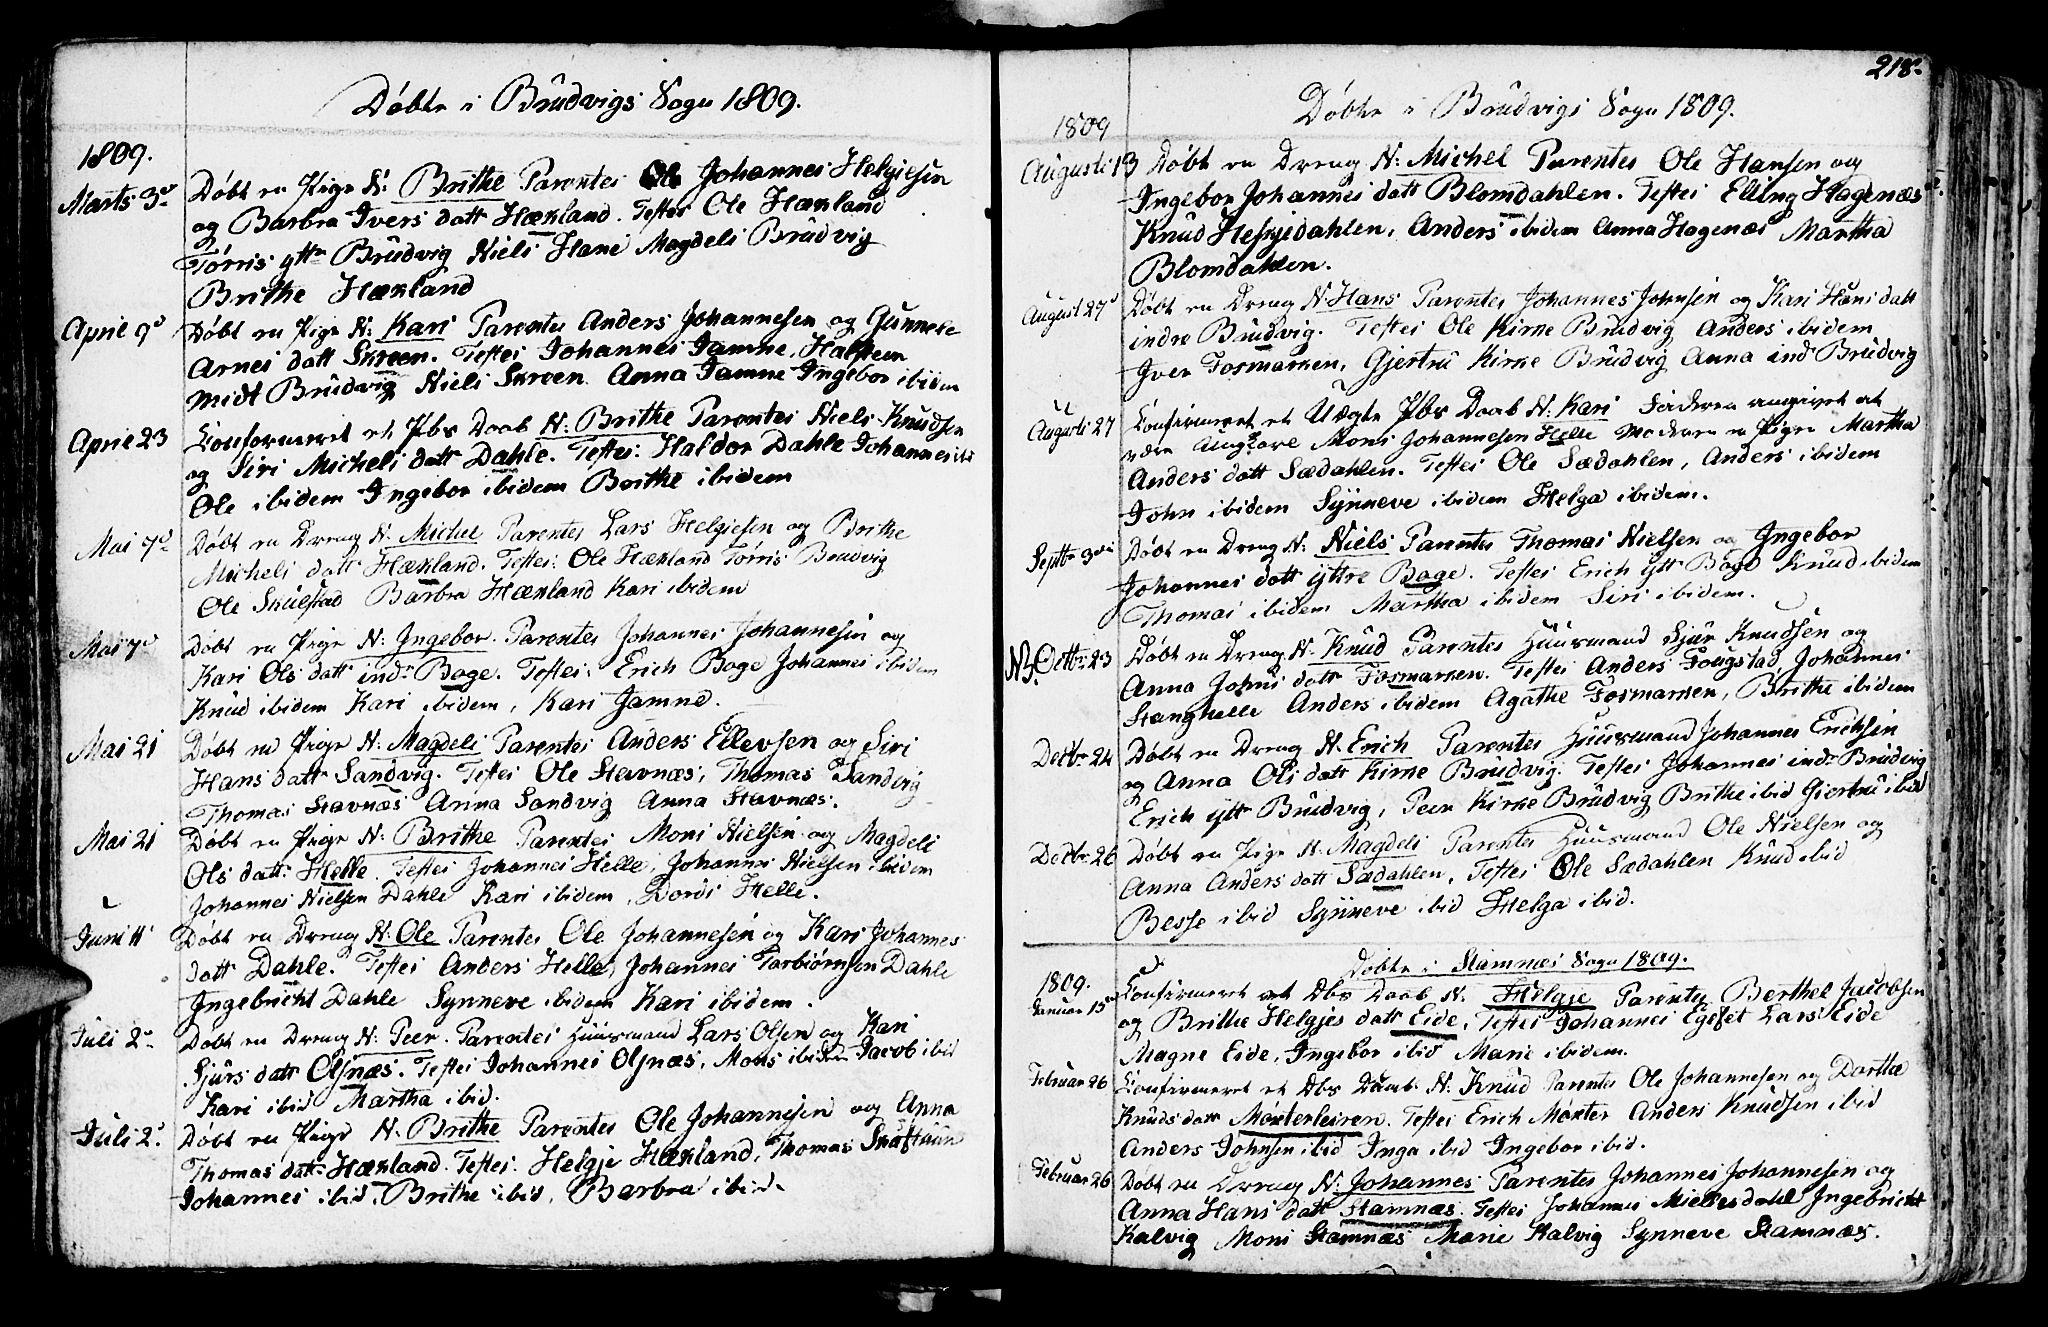 Døbte i Brudvigs Sogn 1809.
1809.
Marts 3d Døbt en Pige N: Brithe Parentes Johannes Helgiesen
og Barbra Ivers datt Hæxland. Testes Ole Hæxland
Tørris ytt Brudvig Niels Hane Magdeli Brudvig
Brithe Hæxland
April 9d Døbt en Pige N: Kari Parentes Anders Johannesen og Gunnele
Arnes datt Skreen. Testes Johannes Jamne, Halsteen
midt Brudvig Niels Skreen. Anna Jamne Ingebor ibidem
April 23 Confirmeret et Hbr Daab N: Brithe Parentes Niels Knudsen
og Siri Michels datt Dahle. Testes: Haldor Dahle Johannes ibd
Ole ibidem Ingebor ibidem Brithe ibidem
Mai 7d Døbt en Dreng N: Michel Parentes Lars Helgiesen og Brithe
Michels datt Hæxland. Testes: Ole Hæxland Tørris Brudvig
Ole Skulstad Barbra Hæxland Kari ibidem
Mai 7d Døbt en Pige N: Ingebor. Parentes Johannes Johannesen og
Kari Ols datt indr Boge. Testes: Erich Boge Johannes ibidem
Knud ibidem Kari ibidem, Kari Jamne.
Mai 21 Døbt en Pige N: Magdeli Parentes Anders Ellevsen og Siri
Hans datt Sandvig. Testes Ole Stavnæs, Thomas Sandvig
Thomas Stavnæs Anna Sandvig Anna Stavnæs.
Mai 21 Døbt en Pige N: Brithe Parentes Mons Nielsen og Magdeli
Ols datt: Helle. Testes Johannes Helle, Johannes Nielsen ibidem
Johannes Nielsen Dahle Kari ibidem, Dordi Helle.
Juni 11 Døbt en Dreng N: Ole Parentes Ole Johannesen og Kari Johannes
datt Dahle. Testes Anders Helle, Johannes Torbiørnsen Dahle
Ingebricht Dahle Synneve ibidem Kari ibidem.
Juli 2d Døbt en Dreng N: Peer. Parentes Huusmand Lars Olsen og Kari
Sjurs datt Olsnæs. Testes Johannes Olsnæs, Mons ibidem Jacob ibid
Kari ibid Martha ibid.
Juli 2d Døbt en Pige N: Brithe Parentes Ole Johannesen og Anna
Thomas datt Hæxland. Testes: Helgje Hæxland, Thomas Skaftuun
Johannes ibid, Brithe ibid, Barbra ibid.
218.
Døbte i Brudvigs Sogn 1809.
1809
Augusti 13 Døbt en Dreng N: Michel Parentes Ole Hansen og
Ingebor Johannes datt Blomdahlen. Testes Elling Hagenæs
Knud Heskjedahlen, Anders ibidem Anna Hagenæs Martha
Blomdahlen.
August 27d Døbt en Dreng N: Hans Parentes Johannes Johnsen og Kari Hans datt
indre Brudvig. Testes Ole Kirke Brudvig Anders ibidem
Iver Fosmarken, Gjertru Kirke Brudvig Anna indr Brudvig
Augusti 27 Confirmeret et Uægte Hbr Daab N: Kari Faderen angivet at
være Ungkarl Mons Johannesen Helle Moderen en Pige Martha
Anders datt Sædahlen. Testes Ole Sædahlen, Anders ibidem
John ibidem Synneve ibidem Helga ibidem.
Septbr 3die Døbt en Dreng N: Niels Parentes Thomas Nielsen og Ingebor
Johannes datt yttre Boge. Testes Erich ytt Boge Knud ibidem
Thomas ibidem Martha ibidem Siri ibidem.
Octbr: 23 Døbt en Dreng N: Knud Parentes Huusmand Sjur Knudsen og
Anna Johns datt Fosmarken. Testes Anders Fougstad, Johannes
Stanghelle Anders ibidem Agathe Fosmarken, Brithe ibidem
Decbr 24 Døbt en Dreng N: Erich Parentes Huusmand Johannes Erichsen
og Anna Ols datt Kirke Brudvig. Testes Johannes indr Brudvig
Erich ytt Brudvig, Peer Kirke Brudvig Brithe ibid Giertru ibid
Decbr 26 Døbt en Pige N: Magdeli Parentes Huusmand Ole Nielsen og
Anna Anders datt Sædahlen, Testes Ole Sædahlen Knud ibid
Besse ibid Synneve ibid Helga ibid.
Døbte i Stamnæs Sogn 1809.
1809.
Januar 15 Confirmeret et Hbr Daab N. Helgje Parentes Berthel Jacobsen
og Brithe Helgjes datt Eide, Testes Johannes Lars Eide
Magne Eide, Ingebor ibid Marie ibidem.
Februar 26 Confirmeret et Hbr Daab N: Knud Parentes Ole Johannesen og Dorthe
Knuds datt Moxterleiren. Testes Erich Moxter Anders Knudsen ibid
Anders Johnsen ibid Inga ibid Ingebor ibid.
Februar 26 Døbt en Dreng N: Johannes Parentes Johannes Johannesen og
Anna Hans datt Stamnæs. Testes Johannes Mielkesdahl Ingebricht
Kalvig Mons Stamnæs Marie Kalvig Synneve Stamnæs.